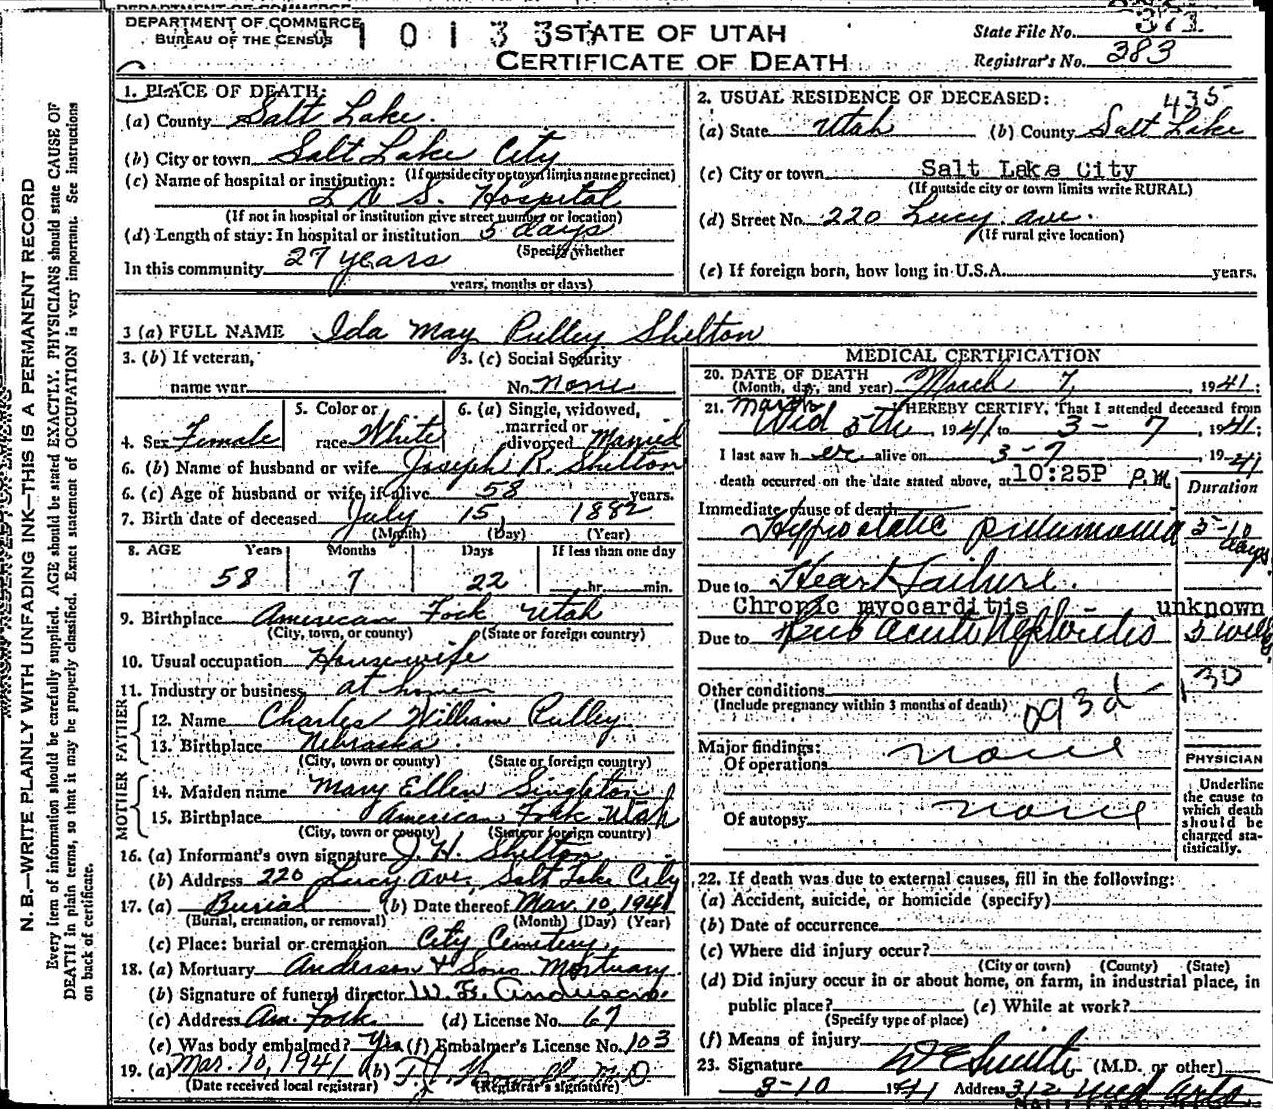 DEPARTMENT OF COMMERCE
BUREAU OF THE CENSUS
1 0 1 3 3
STATE OF UTAH
CERTIFICATE OF DEATH
State File No. 371
Registrar's No. 383
N. B.—WRITE PLAINLY WITH UNFADING INK—THIS IS A PERMANENT RECORD
Every item of information should be carefully supplied. AGE should be stated EXACTLY. PHYSICIANS should state CAUSE OF
DEATH in plain terms, so that it may be properly classified. Exact statement of OCCUPATION is very important. See instructions
on back of certificate.
1. PLACE OF DEATH:
(a) County Salt Lake.
(b) City or town Salt Lake City
(If outside city or town limits name precinct)
(c) Name of hospital or institution:
L D S. Hospital
(If not in hospital or institution give street number or location)
(d) Length of stay: In hospital or institution 5 days
(Specify whether
In this community 27 years
years, months or days)
2. USUAL RESIDENCE OF DECEASED: 435
(a) State Utah (b) County Salt Lake
(c) City or town Salt Lake City
(If outside city or town limits write RURAL)
(d) Street No. 220 Lucy ave.
(If rural give location)
(e) If foreign born, how long in U.S.A. years.
3 (a) FULL NAME Ida May Pulley Shelton
3. (b) If veteran,
name war
3. (c) Social Security
No. none
4. Sex Female
5. Color or
race White
6. (a) Single, widowed,
married or
divorced Married
6. (b) Name of husband or wife Joseph R. Shelton
6. (c) Age of husband or wife if alive 58 years.
7. Birth date of deceased July 15, 1882
(Month) (Day) (Year)
8. AGE Years Months Days If less than one day
58 7 22 hr. min.
9. Birthplace American Fork, Utah
(City, town, or county) (State or foreign country)
10. Usual occupation Housewife
11. Industry or business at home
FATHER
12. Name Charles William Pulley
13. Birthplace Nebraska.
(City, town or county) (State or foreign country)
MOTHER
14. Maiden name Mary Ellen Singleton
15. Birthplace American Fork Utah
(City, town or county) (State or foreign country)
16. (a) Informant's own signature J. H. Shelton
(b) Address 220 Lucy Ave, Salt Lake City
17. (a) Burial (b) Date thereof Mar. 10, 1941
(Burial, cremation, or removal) (Month) (Day) (Year)
(c) Place: burial or cremation City Cemetery.
18. (a) Mortuary Anderson & Sons Mortuary
(b) Signature of funeral director W. E. Anderson.
(c) Address Am. Fork (d) License No. 67
(e) Was body embalmed? Yes (f) Embalmer's License No. 103
19. (a) Mar. 10, 1941 (b)
(Date received local registrar) (Registrar's signature)
MEDICAL CERTIFICATION
20. DATE OF DEATH
(Month, day, and year) March 7, 1941;
21. I HEREBY CERTIFY, That I attended deceased from
March
Wed 5th, 1941 to 3 - 7, 1941;
I last saw h er alive on 3-7, 1941
death occurred on the date stated above, at 10:25P P.m
Duration
Immediate cause of death
Hypostatic pneumonia 5-10 days
Due to Heart Failure.
Chronic myocarditis - unknown
Due to Sub acute Nephritis 3 wks
Other conditions 130
(Include pregnancy within 3 months of death) 93d
Major findings:
Of operations none
Of autopsy none
PHYSICIAN
Underline
the cause to
which death
should be
charged sta-
tistically.
22. If death was due to external causes, fill in the following:
(a) Accident, suicide, or homicide (specify)
(b) Date of occurrence
(c) Where did injury occur?
(City or town) (County) (State)
(d) Did injury occur in or about home, on farm, in industrial place, in
public place? (e) While at work?
(Specify type of place)
(f) Means of injury
23. Signature W E Smith (M.D. or other)
3-10 1941 Address 312 Med Arts